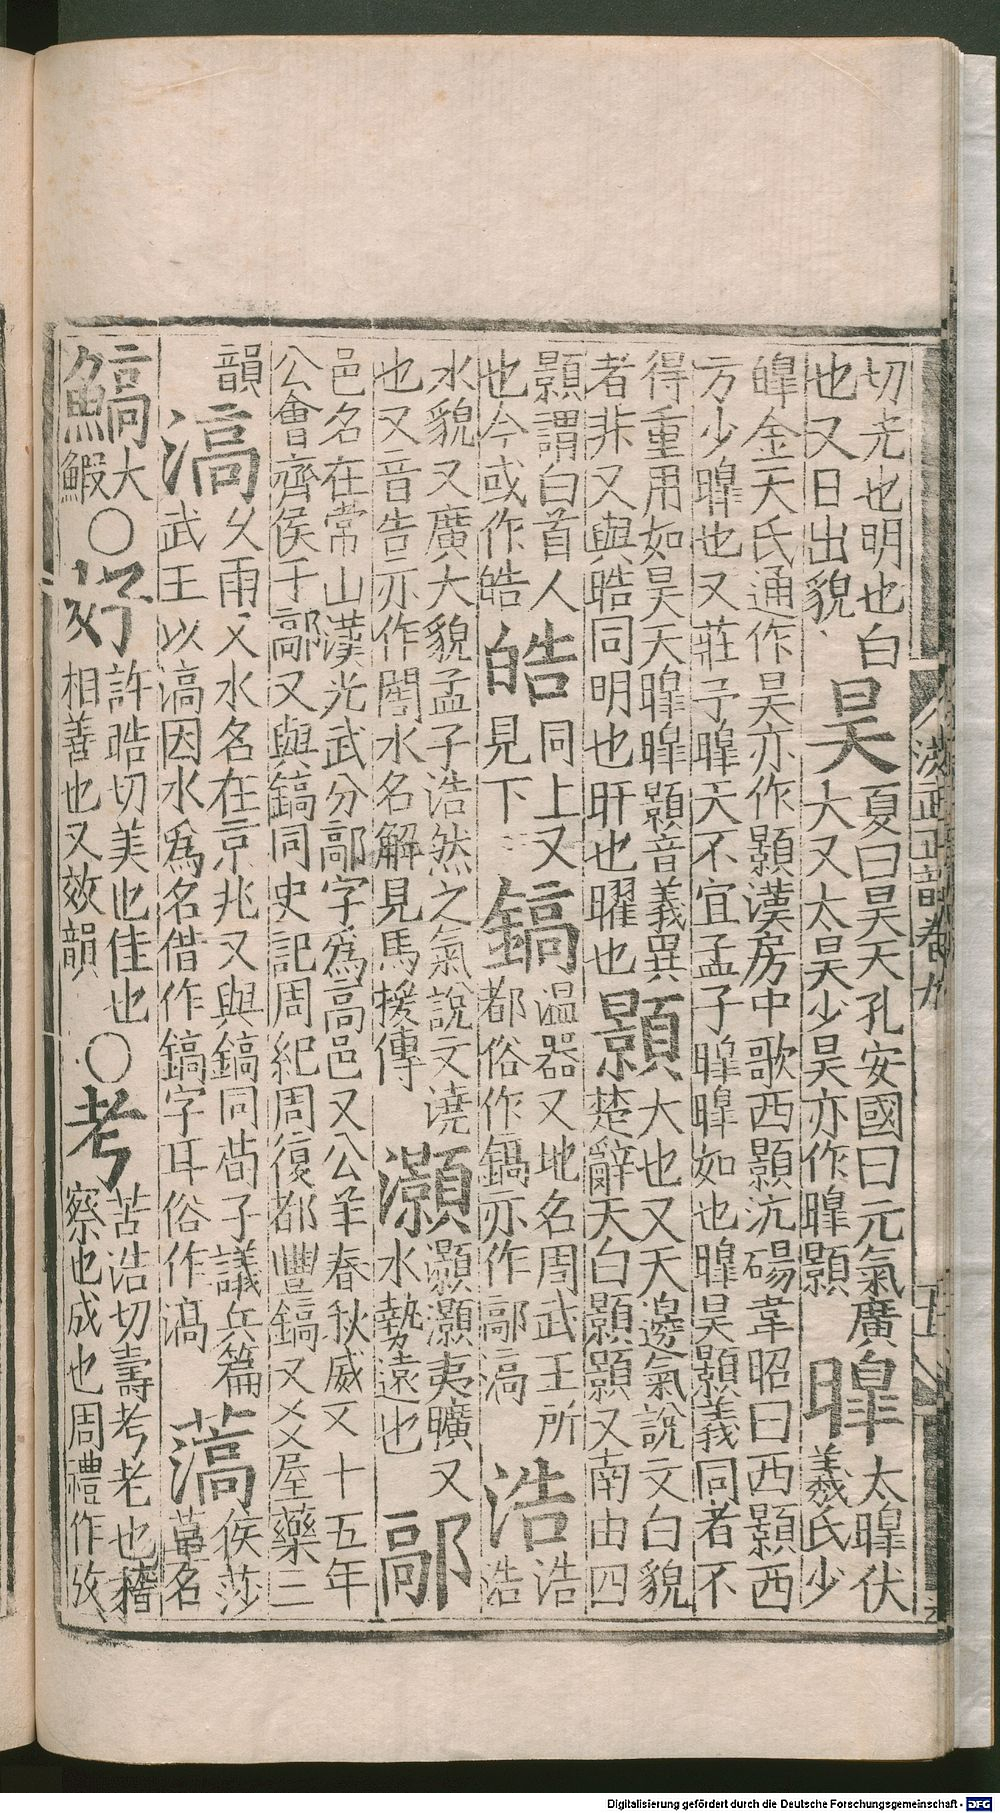 切光也明也白也又日出貌昊夏曰昊天孔安國曰元氣廣大又太昊少昊亦作暤顥暤太暤伏羲氏少
皞金天氏通作昊亦作顥漢房中歌西顥沆碭韋昭曰西顥西方少暤也又莊子暤天不宜孟子暤暤如也暤昊顥義同者不
得重用如昊天暤暤顥音義異者非又與晧同明也旰也曜也顥大也又天邊氣說文白貌楚辭天白顥顥又南山四
顥謂白首人也今或作皓皓同上又見下鎬溫器又地名周武王所都俗作鍋亦作鄗滈浩浩浩
水貌又廣大貌孟子浩然之氣說文澆也又音告亦作閤水名解見馬援傳灝灝灝夷曠又水勢遠也鄗
邑名在常山漢光武分鄗字爲高邑又公羊春秋威又十五年公會齊侯于鄗又與鎬同史記周紀周復都豐鎬又爻屋藥三
韻滈久雨又水名在京兆又與鎬同荀子議兵篇武王以滈因水爲名借作鎬字耳俗作滈薃侯莎名
鰝大鰕○好許晧切美也佳也相善也又效韻○考苦浩切壽考老也稽察也成也周禮作攷
洪武正韻卷九
Digitalisierung gefördert durch die Deutsche Forschungsgemeinschaft - DFG